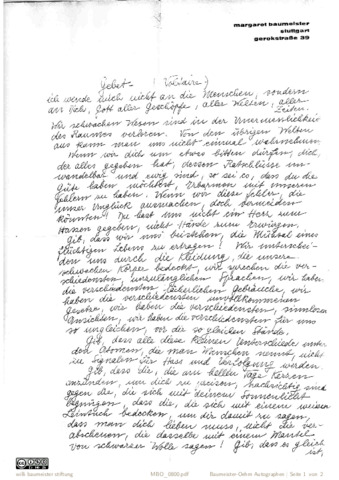 margaret baumeister
stuttgart
gerokstraße 39
Gebet - (Voltaire)
ich wende mich nicht an die Menschen, sondern
an Dich, Gott aller Geschöpfe, aller Welten, aller
Zeiten.
Wir schwachen Wesen sind in der Unermesslichkeit
des Raumes verloren. Von den übrigen Welten
aus kann man uns nicht einmal wahrnehmen.
Wenn wir dich um etwas bitten dürfen, dich,
der alles gegeben hat, dessen Ratschlüsse un-
wandelbar und ewig sind, so sei es, dass du die
Güte haben möchtest, Erbarmen mit unseren
Fehlern zu haben. Wenn wir diese Fehler, die
unser Unglück ausmachen, doch vermeiden
könnten! Du hast uns nicht ein Herz zum
Hassen gegeben, nicht Hände zum Erwürgen.
Gib, dass wir uns beistehen, die Mühsal eines
flüchtigen Lebens zu ertragen! Wir unterschei-
den uns durch die Kleidung, die unsere
schwachen Körper bedeckt, wir sprechen die ver-
schiedensten, unzulänglichen Sprachen, wir haben
die verschiedensten lächerlichen Gebräuche, wir
haben die verschiedensten unvollkommenen
Gesetze, wir haben die verschiedensten, sinnlosen
Ansichten, wir haben die verschiedensten für uns
so ungleichen, vor dir so gleichen Stände.
Gib, dass alle diese kleinen Unterschiede unter
den Atomen, die man Menschen nennt, nicht
zu Signalen für Hass und Verfolgung werden.
Gib, dass die, die am hellen Tage Kerzen
anzünden, um dich zu preisen, nachsichtig sind
gegen die, die sich mit deinem Sonnenlicht
begnügen, dass die, die sich mit einem weissen
Leintuch bedecken, um dir damit zu sagen,
dass man dich lieben muss, nicht die ver-
abscheuen, die dasselbe mit einem Mantel
von schwarzer Wolle sagen! Gib, dass es gleich
ist,
willi baumeister stiftung
MBO_0800.pdf
Baumeister-Dokre Autographen | Seite 1 von 2